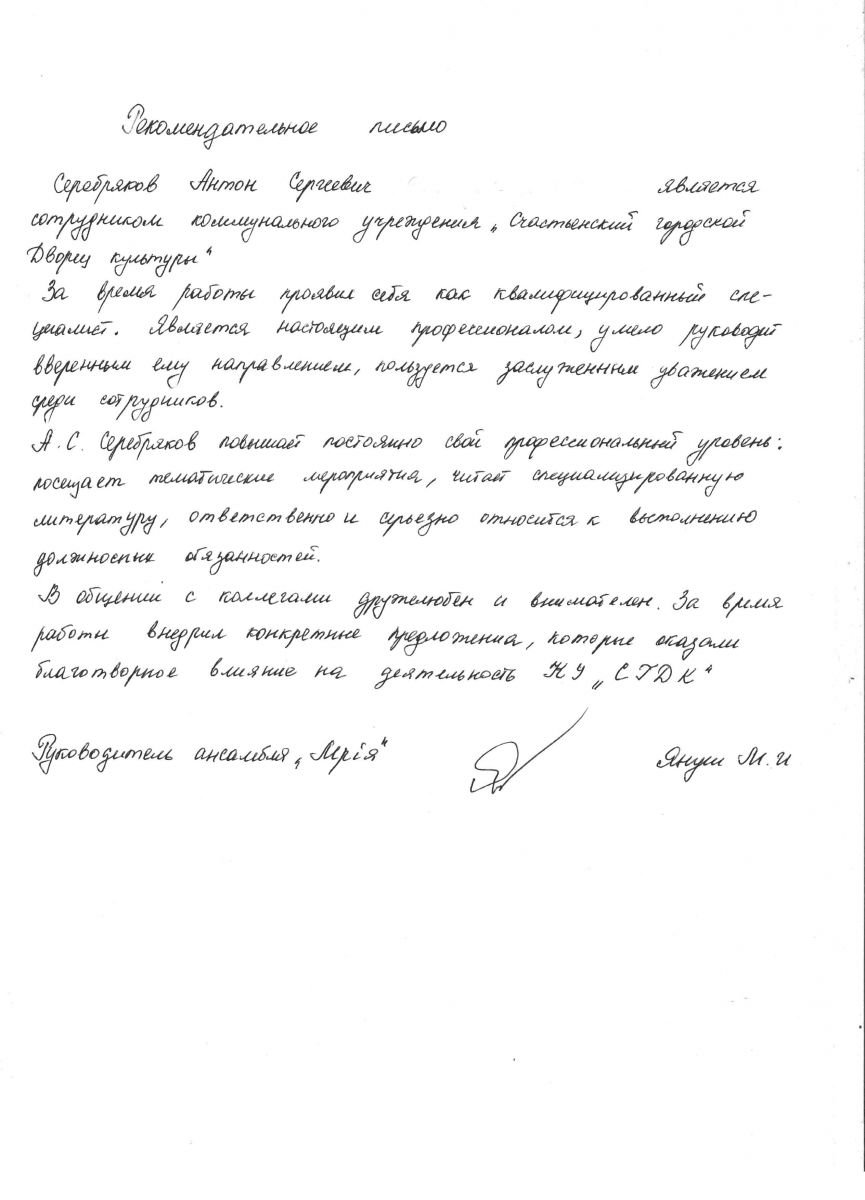 Рекомендательное письмо
Серебряков Антон Сергеевич является
сотрудником коммунального учреждения „Счастьенский городской
Дворец культуры"
За время работы проявил себя как квалифицированный спе-
циалист. Является настоящим профессионалом, умело руководит
вверенным ему направлением, пользуется заслуженным уважением
среди сотрудников.
А.С. Серебряков повышает постоянно свой профессиональный уровень:
посещает тематические мероприятия, читает специализированную
литературу, ответственно и серьезно относится к выполнению
должностных обязанностей.
В общении с коллегами дружелюбен и внимателен. За время
работы внедрил конкретные предложения, которые оказали
благотворное влияние на деятельность КУ „СГДК"
Руководитель ансамбля „Мрія" Януш М.И